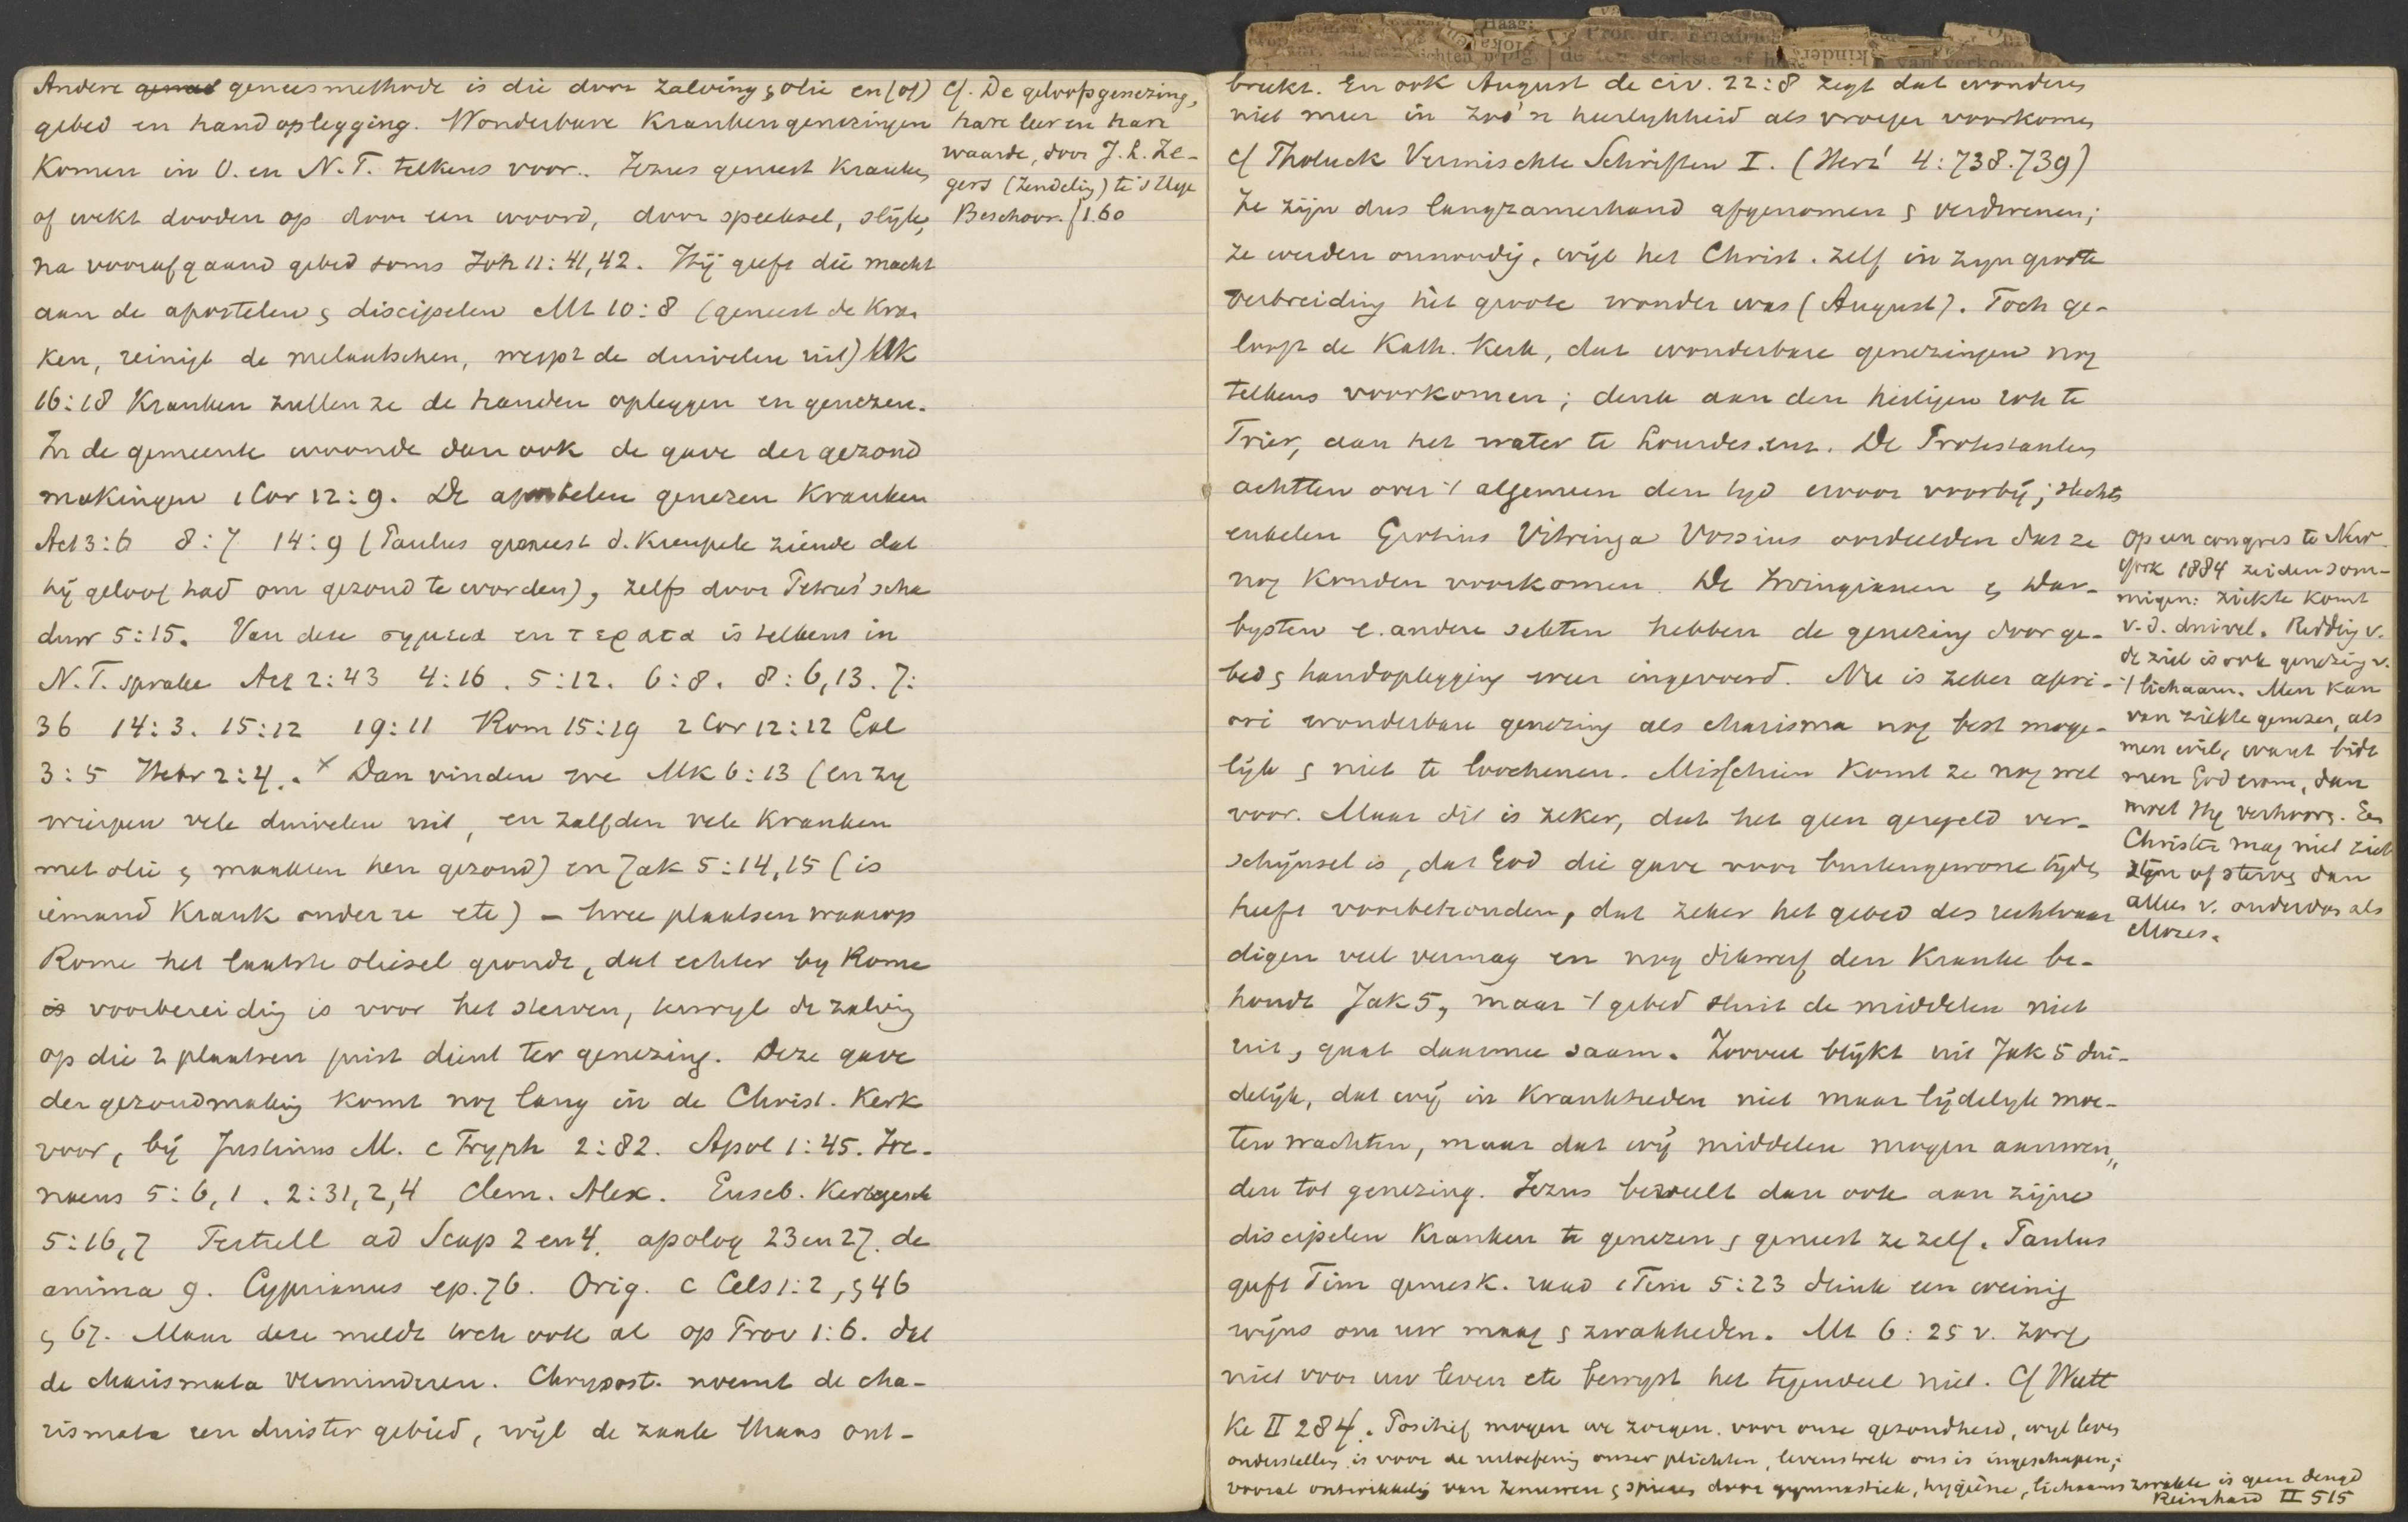 Andere geneesmethode is die door zalving, olie en (of)
gebed en handoplegging. Wonderbare Krankengenezingen
Komen in O. en N.T. telkens voor. Jezus geneest Kranken
of wekt dooden op door een woord, door speeksel, slijk,
na voorafgaand gebed soms Joh 11:41,42. Hij geeft die macht
aan de apostelen & discipelen Mt 10:8 (geneest de Kran
ken, reinigt de melaatschen, werpt de duivelen uit) Mk
16:18 Kranken zullen ze de handen opleggen en genezen.
In de gemeente woonde dan ook de gave der gezond
makingen 1 Cor 12:9. De apostelen genezen Kranken
Act 3:6 8:7 14:9 (Paulus geneest d. Kreupele ziende dat
hij geloof had om gezond te worden), zelfs door Petrus' scha
duw 5:15. Van deze σημεια en τερατα is telkens in
N.T. sprake Act 2:43 4:16. 5:12. 6:8. 8:6,13. 7:
36 14:3. 15:12 19:11 Rom 15:19 2 Cor 12:12 Gal
3:5 Hebr 2:4. x Dan vinden we Mk 6:13 (en zy
wierpen vele duivelen uit, en zalfden vele Kranken
met olie & maakten hen gezond) en Jak 5:14,15 (is
iemand Krank onder u etc) – twee plaatsen waarop
Rome het laatste oliesel grondt, dat echter by Rome
is voorbereiding is voor het sterven, terwyl de zalving
op die 2 plaatsen juist dient ter genezing. Deze gave
der gezondmaking komt nog lang in de Christ. Kerk
voor, bij Justinus M. c Tryph 2:82. Apol 1:45. Ire-
naeus 5:6,1. 2:31,2,4 Clem. Alex. Euseb. Kerkgesch
5:16,7 Tertull ad Scap 2 en 4. apolog 23 en 27. de
anima 9. Cyprianus ep. 76. Orig. c Cels 1:2, § 46
§ 67. Maar deze meldt toch ook al op Prov 1:6. dat
de charismata verminderen. Chrysost. noemt de cha-
rismata een duister gebied, wijl de zaak thans ont-
Cf. De geloofsgenezing,
hare leer en hare
waarde, door J. H. Ze-
gers (Zendeling) te 's Hage
Beschoor. f 1.60
breekt. En ook August de civ. 22:8 zegt dat wonderen
niet meer in zoo'n heerlykheid als vroeger voorkomen
cf Tholuck Vermischte Schriften I. (Herz' 4:738.739)
Ze zijn dus langzamerhand afgenomen & verdwenen;
ze werden onnoodig, wijl het Christ. zelf in zyn groote
verbreiding hèt groote wonder was (August). Toch ge-
looft de Kath. Kerk, dat wonderbare genezingen nog
telkens voorkomen; denk aan den heiligen rok te
Trier, aan het water te Lourdes. enz. De Protestanten
achtten over 't algemeen den tyd ervoor voorbij; slechts
enkelen Grotius Vitringa Vossius oordeelden dat ze
nog Konden voorkomen. De Irvingianen & Dar-
bysten e. andere sekten hebben de genezing door ge-
bed & handoplegging weer ingevoerd. Nu is zeker apri-
ori wonderbare genezing als charisma nog best moge-
lijk & niet te loochenen. Misschien Komt ze nog wel
voor. Maar dit is zeker, dat het geen geregeld ver-
schijnsel is, dat God die gave voor buitengewone tijden
heeft voorbehouden, dat zeker het gebed des rechtvaar
digen veel vermag en nog dikwerf den Kranke be-
houdt Jak 5, maar 't gebed sluit de middelen niet
uit, gaat daarmee saam. Zooveel blijkt uit Jak 5 dui-
delijk, dat wij in Krankheden niet maar lijdelyk moe-
ten wachten, maar dat wij middelen mogen aanwen„
den tot genezing. Jezus beveelt dan ook aan zijne
discipelen Kranken te genezen & geneest ze zelf. Paulus
geeft Tim geneesk. raad 1 Tim 5:23 drink een weinig
wijns om uw maag & zwakheden. Mt 6:25 v. zorg
niet voor uw leven etc bewyst het tegendeel niet. Cf Wutt
ke II 284. Positief mogen we zorgen voor onze gezondheid, wyl leven
onderstelling is voor de uitoefening onzer plichten, levenstrek ons is ingeschapen;
vooral ontwikkeling van zenuwen & spieren door gymnastiek, hygiëne, lichaamszwakte is geen deugd
Reinhard II 515
Op een congres te New-
York 1884 zeiden som-
migen: ziekte komt
v. d. duivel. Redding v.
de ziel is ook genezing v.
't lichaam. Men Kan
van ziekte genezen, als
men wil, want bidt
men God erom, dan
moet Hy verhooren. Een
Christen mag niet ziek
zijn of sterven dan
alleen v. ouderdom als
Mozes.
Haag:
Prof. dr. Friedri